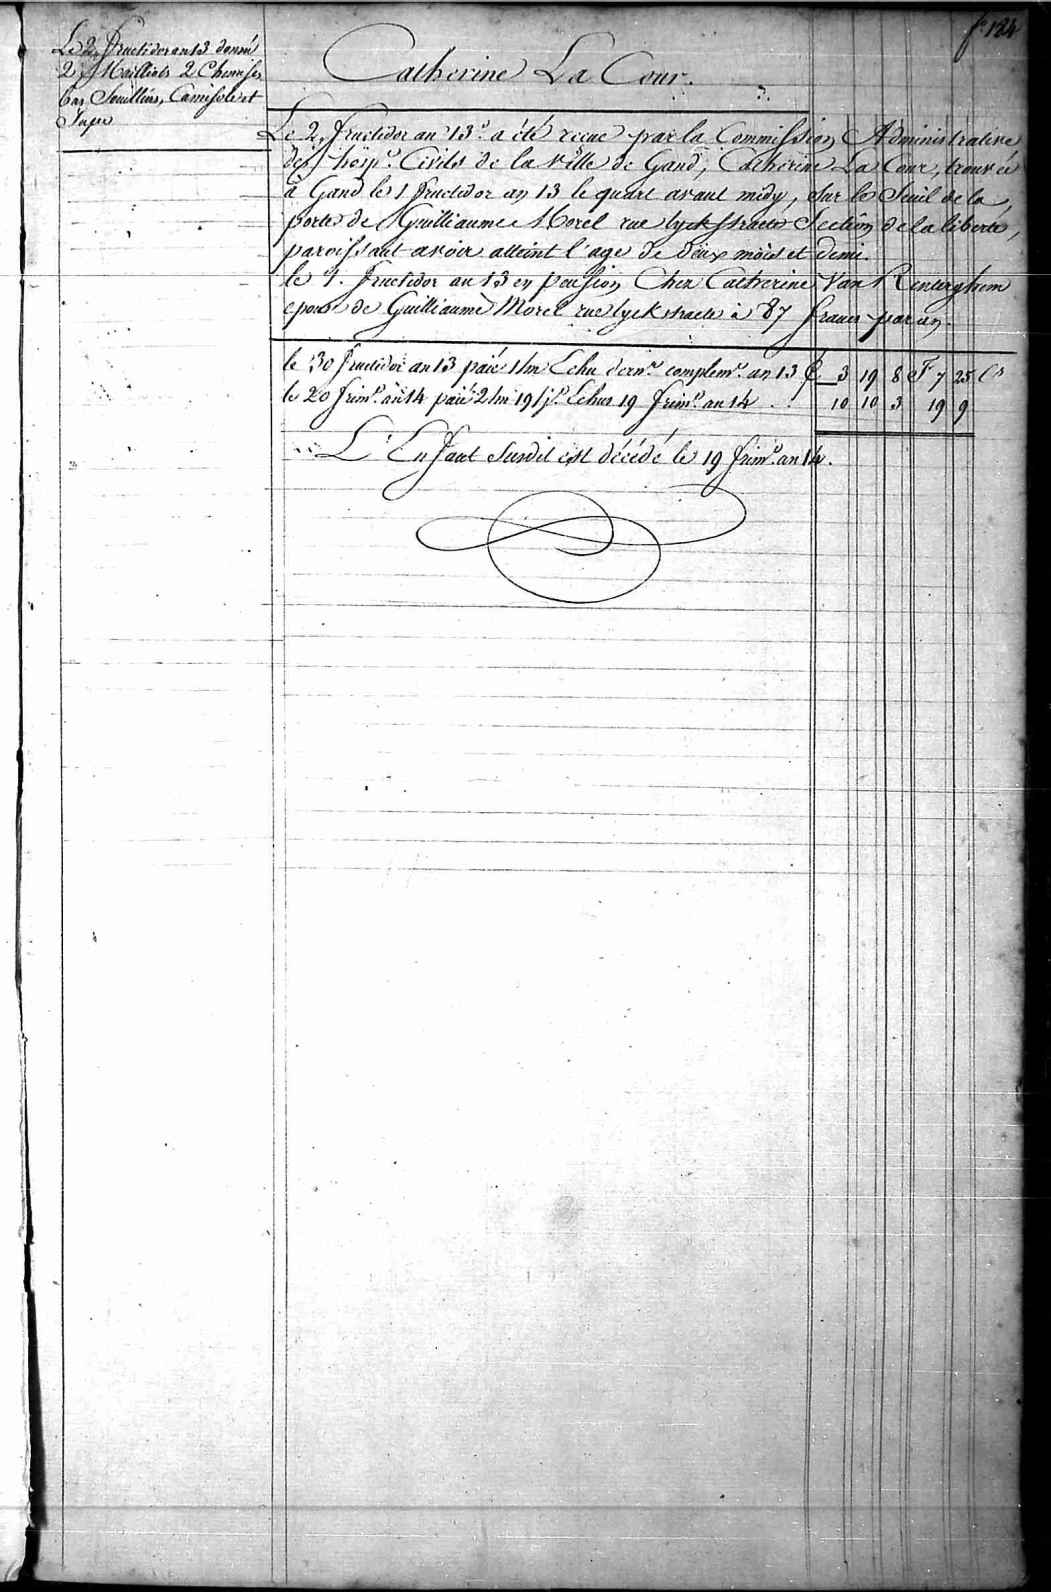 fo. 124
Le 2 fructidor an 13 donné
2 Maillots 2 Chemises
bas Souilliers, Camisole et
Jupe
Catherine La Cour.
Le 2 fructidor an 13e. a été recue par la Commission Administrative
des hosp.ce Civils de la ville de Gand, Catherine La Cour, trouvée
à Gand le 1 fructidor an 13 le quart avant midy, sur le Seuil de la
porte de Guilliaume Morel rue lyckstraete Section de la liberté,
paroissant avoir atteint l'age de deux mois et demi.
le 4. fructidor an 13 en pension Chez Catherine Van Renterghem
epouse de Guilliaume Morel rue lyckstraete à 87 francs par an.
le 30 fructidor an 13 paié 1 m Echu dern.r complem.re an 13 £ 3 19 8 F 7 25 Cs
le 20 frim.e an 14 paié 2 m 19 j.rs Echus 19 frim.e an 14 . . 10 10 3 19 9
L'Enfant Susdit est décédé le 19 frim.e an 14.